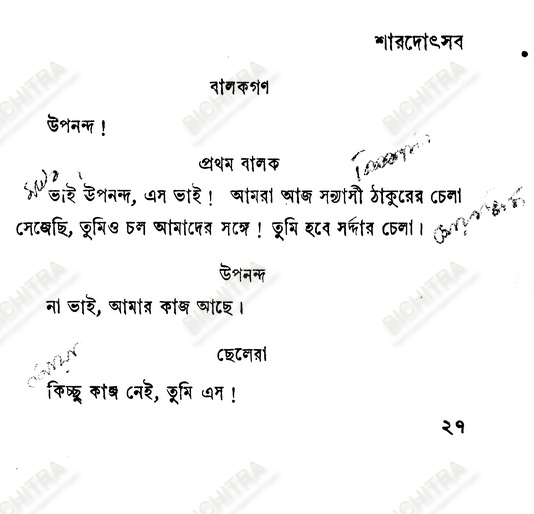 শারদোৎসব
বালকগণ
উপনন্দ !
প্রথম বালক
ভাই উপনন্দ, এস ভাই ! আমরা আজ সন্ন্যাসী ঠাকুরের চেলা
সেজেছি, তুমিও চল আমাদের সঙ্গে ! তুমি হবে সর্দ্দার চেলা।
উপনন্দ
না ভাই, আমার কাজ আছে।
ছেলেরা
কিচ্ছু কাজ নেই, তুমি এস !
২৭
BICHITRA
BICHITRA
BICHITRA
BICHITRA
BICHITRA
BICHITRA
BICHITRA
BICHITRA
BICHITRA
BICHITRA
BICHITRA
BICHITRA